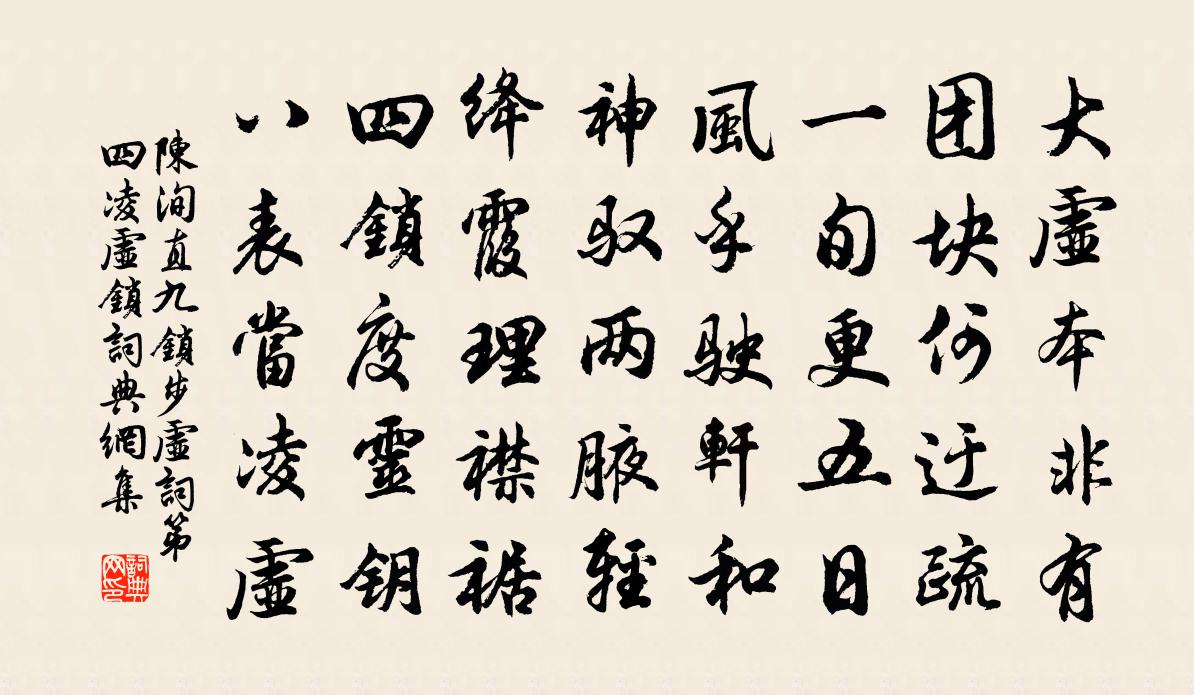 大虛本非有
团块何迂疏
一旬更五日
風乎駛軒和
神驭两腋輕
绛霞理襟裾
四鎖度靈钥
八表當凌虛
陳洵直九鎖步虛詞第
四凌虛鎖詞典網集
詞典
网印